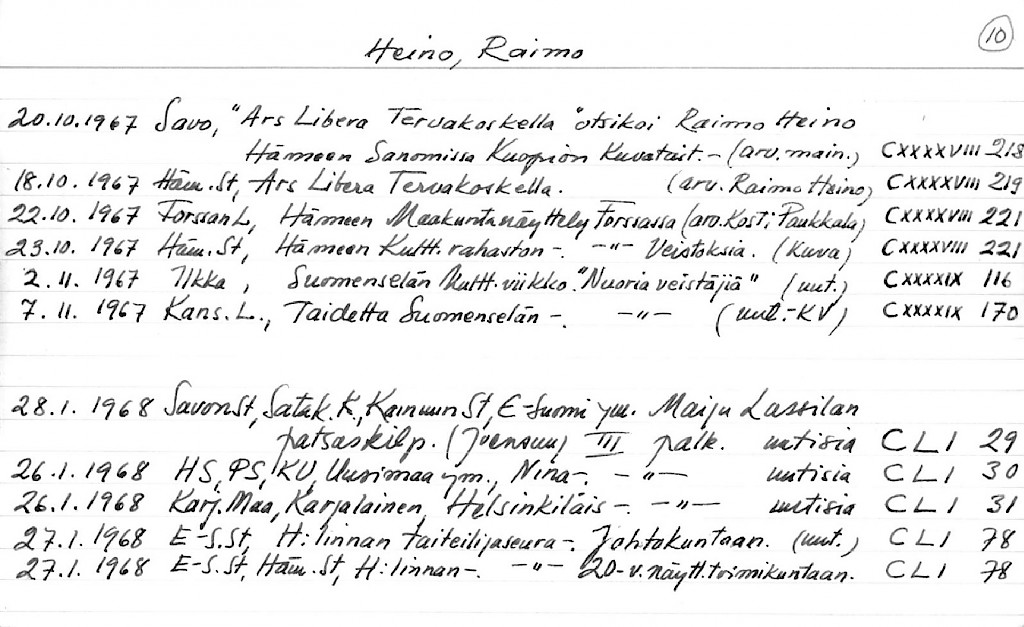 10
Heino, Raimo
20.10.1967 Savo, "Ars Libera Tervakoskella" otsikoi Raimo Heino
Hämeen Sanomissa Kuopion Kuvatait.- (arv. main.) CXXXXVIII 218
18.10.1967 Häm.St, Ars Libera Tervakoskella. (arv. Raimo Heino) CXXXXVIII 219
22.10.1967 Forssan L, Hämeen Maakuntanäyttely Forssassa (arv. Kosti Paukkala) CXXXXVIII 221
23.10.1967 Häm.St, Hämeen Kultt.rahaston -. -"- Veistoksia. (Kuva) CXXXXVIII 221
2.11.1967 Ilkka, Suomenselän Kultt.viikko. "Nuoria veistäjiä" (uut.) CXXXXIX 116
7.11.1967 Kans.L., Taidetta Suomenselän -. -"- (uut.-KV) CXXXXIX 170
28.1.1968 SavonSt, Satak.K., Kainuun St, E-Suomi ym. Maiju Lassilan
patsaskilp. (Joensuu) III palk. uutisia CLI 29
26.1.1968 HS, PS, KU, Uusimaa ym., Nina-. -"- uutisia CLI 30
26.1.1968 Karj.Maa, Karjalainen, Helsinkiläis -. -"- uutisia CLI 31
27.1.1968 E-S.St, H:linnan taiteilijaseura -. Johtokuntaan. (uut.) CLI 78
27.1.1968 E-S.St, Häm.St, H:linnan -. -"- 20-v.näytt.toimikuntaan. CLI 78